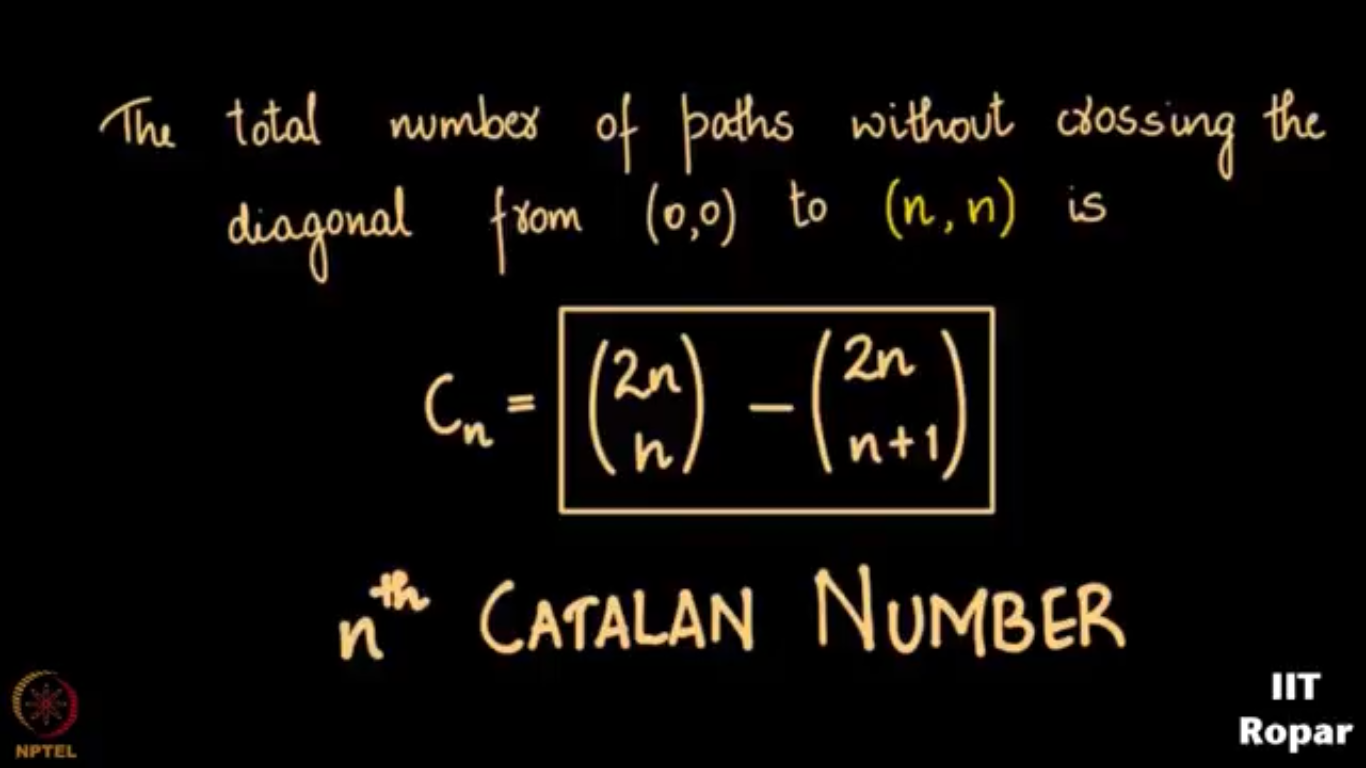 The total number of paths without crossing the
diagonal from (0,0) to (n, n) is
Cₙ = (2n n) − (2n n+1)
nᵗʰ CATALAN NUMBER
NPTEL
IIT
Ropar